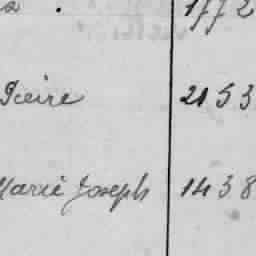 1772
Pierre 2153
Marie Joseph 1438